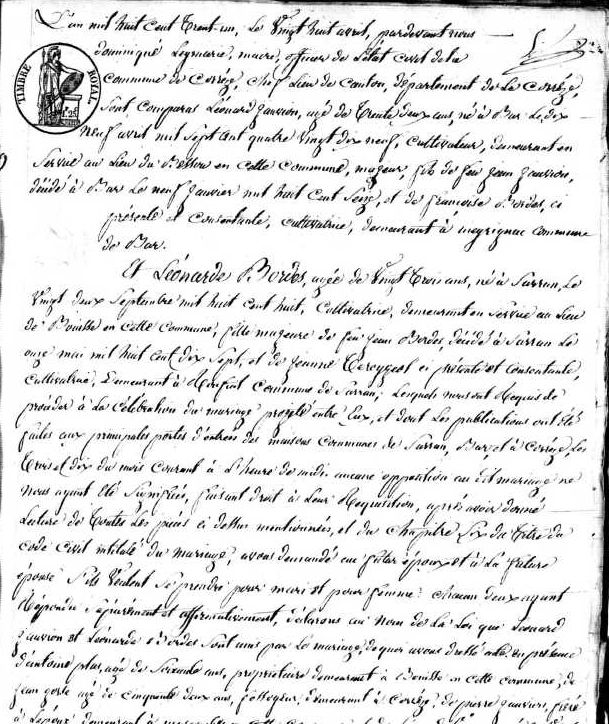 L'an mil huit cent trent un, le vingt huit avril, pardevant nous
dominique Leymarie, maire, officier de l'état civil de la
commune de Corrèze, chef lieu de canton, département de la Corrèze,
TIMBRE ROYAL
sont comparus Léonard Jauvion, agé de trente deux ans, né à Bar le dix
neuf avril mil sept cent quatre vingt dix neuf, cultivateur, demeurant en
service au lieu du en cette commune, majeur, fils de feu jean Jauvion,
décédé à Bar le neuf janvier mil huit cent seize, et de francoise Bordes, ci
présente et consentante, cultivatrice, demeurant à meyrignac commune
de Bar.
Et Léonarde Bordes, agée de vingt trois ans, né à Sarran, le
vingt deux Septembre mil huit cent huit, cultivatrice, demeurant en service au lieu
de Bouisse en cette commune, fille majeure de feu jean Bordes, décédé à Sarran le
onze mai mil huit cent dix sept, et de jeanne ci présente et consentante,
cultivatrice, demeurant à commune de Sarran; lesquels nous ont requis de
procéder à la célébration du mariage projeté entre eux, et dont les publications ont été
faites aux principales portes d'entrée des maisons communes de Sarran, Bar et à Corrèze, les
trois et dix du mois courant à l'heure de midi. aucune opposition au dit mariage ne
nous ayant été signifiée, faisant droit à leur requisition, après avoir donné
lecture de toutes les pièces ci dessus mentionnées, et du chapitre six du titre du
code civil intitulé du mariage, avons demandé au futur époux et à la future
épouse s'ils veulent se prendre pour mari et pour femme: chacun deux ayant
répondu séparément et affirmativement, déclarons au nom de la loi que Léonard
Jauvion et Léonarde Bordes sont unis par le mariage, de quoi avons dressé acte en présence
d'antoine plas, agé de soixante ans, propriétaire demeurant à Bouisse en cette commune; de
jean agé de cinquante deux ans, demeurant à Corrèze, de pierre Jauvion, frère